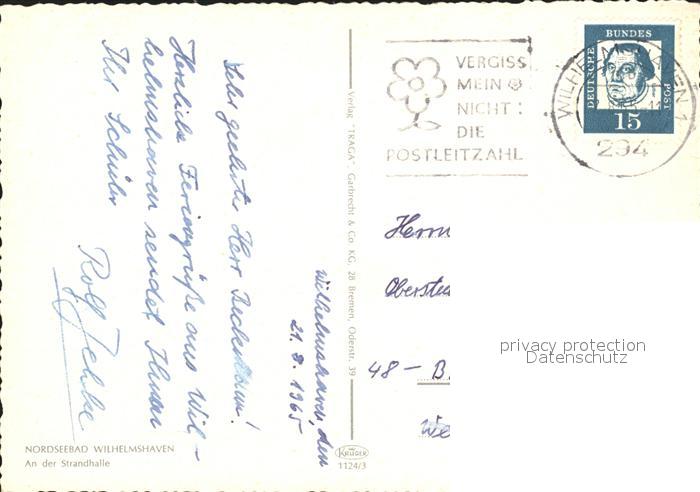 Wilhelmshaven, den
21. 8. 1965
Sehr geehrter Herr
Herzliche Feriengrüße aus Wil-
helmshaven sendet Ihnen
Ihr Schüler
Rolf
NORDSEEBAD WILHELMSHAVEN
An der Strandhalle
Verlag "TRAGA" Garbrecht & Co. KG, 28 Bremen, Oderstr. 39
KRÜGER
1124/3
VERGISS
MEIN
NICHT:
DIE
POSTLEITZAHL
WILHELMSHAVEN 1
294
DEUTSCHE BUNDESPOST
15
Herrn
48 - B.
privacy protection
Datenschutz